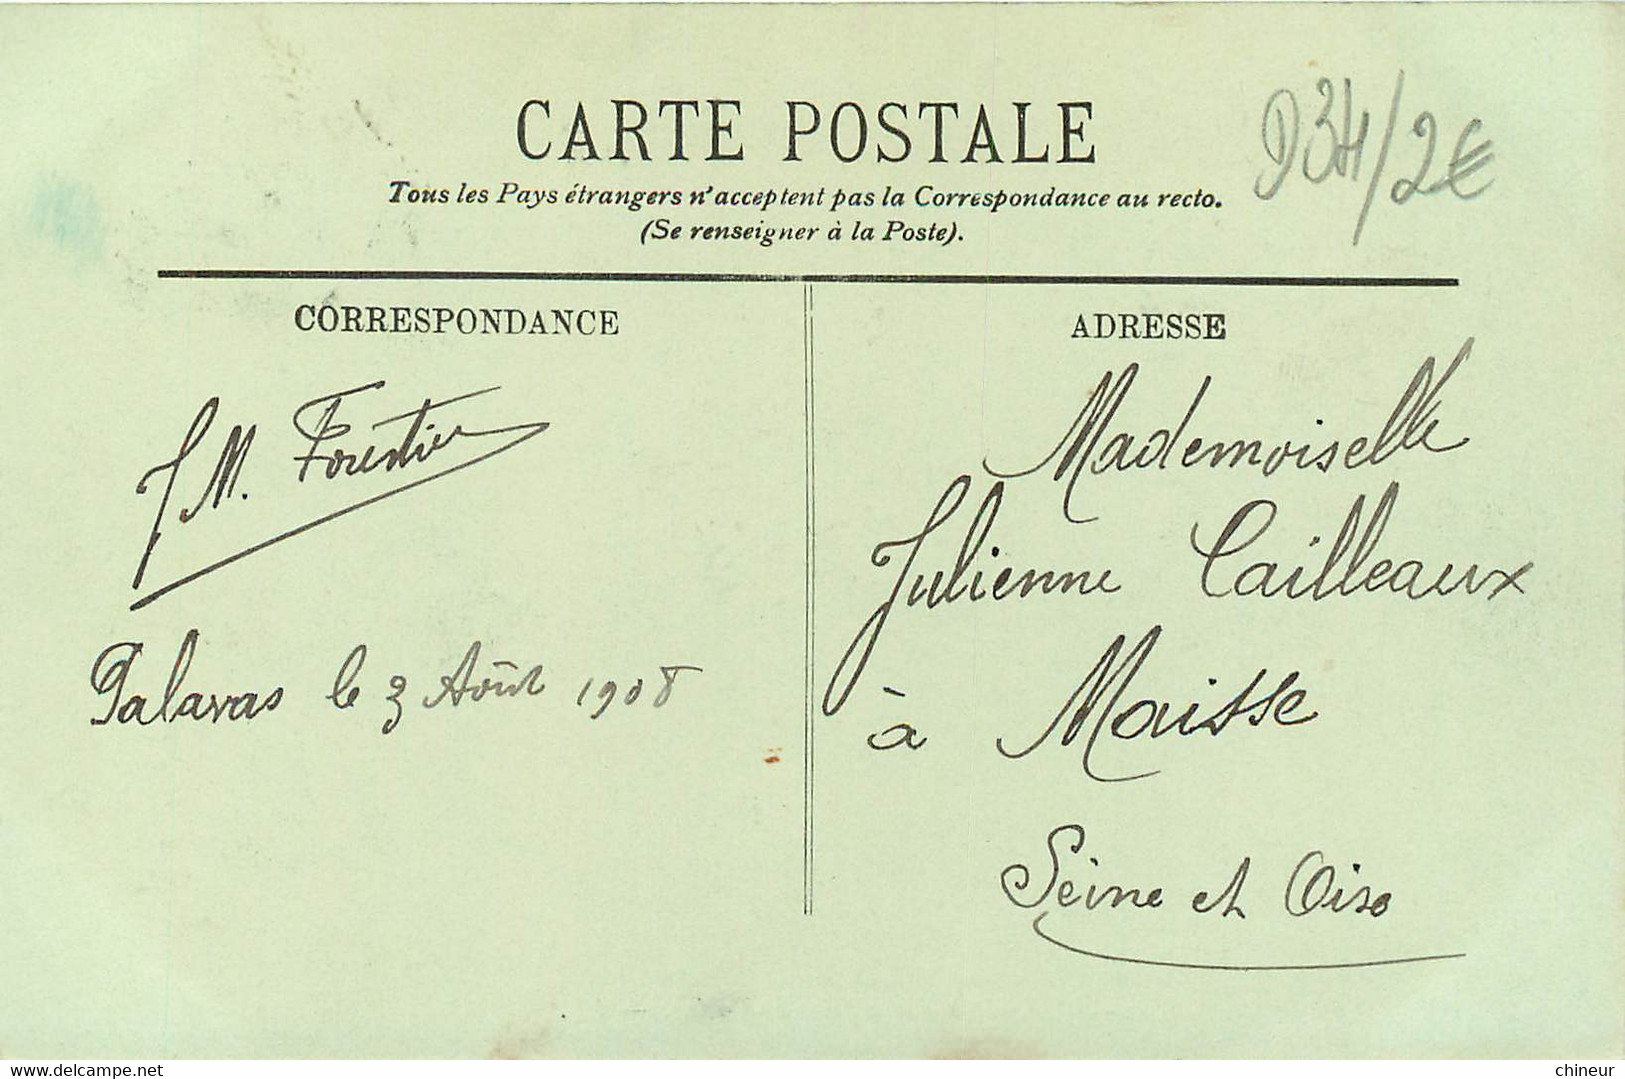 CARTE POSTALE
D34/2€
Tous les Pays étrangers n'acceptent pas la Correspondance au recto.
(Se renseigner à la Poste).
CORRESPONDANCE
J M. Forestier
Palavas le 3 Août 1908
ADRESSE
Mademoiselle
Julienne Cailleaux
à Maisse
Seine et Oise
www.delcampe.net
chineur